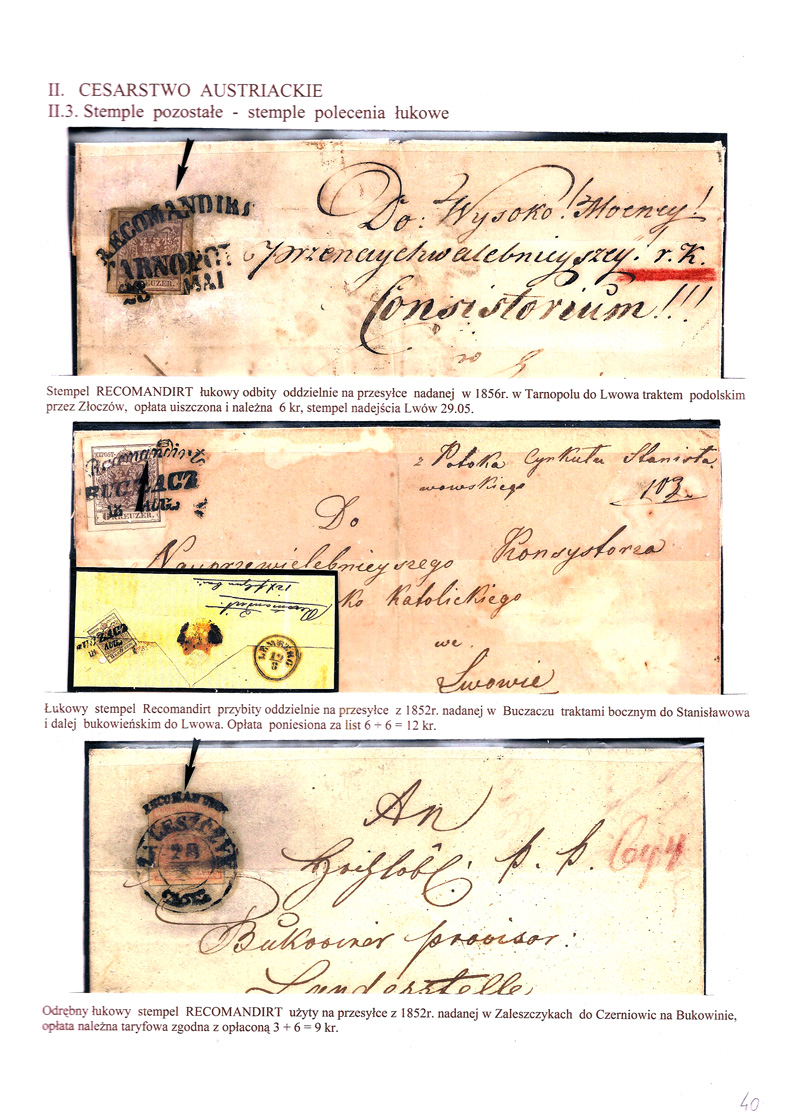 II. CESARSTWO AUSTRIACKIE
II.3. Stemple pozostałe - stemple polecenia łukowe
RECOMANDIRT
TARNOPOL
28 MAI
KREUZER.
Do: Wysoko! Mocney!
przenaychwalebnieyszey! r. K.
Consistorium!!!
Stempel RECOMANDIRT łukowy odbity oddzielnie na przesyłce nadanej w 1856r. w Tarnopolu do Lwowa traktem podolskim
przez Złoczów, opłata uiszczona i należna 6 kr, stempel nadejścia Lwów 29.05.
Recomandirt
BUCZACZ
18 AUG.
6 KREUZER.
z Potoka Cyrkułu Stanisła
wowskiego
103
Do
Nayprzewielebnieyszego Konsystorza
ko Katolickiego
we
Lwowie
Recomandirt.
BUCZACZ
18 AUG.
LEMBERG
19
8
Łukowy stempel Recomandirt przybity oddzielnie na przesyłce z 1852r. nadanej w Buczaczu traktami bocznym do Stanisławowa
i dalej bukowieńskim do Lwowa. Opłata poniesiona za list 6 + 6 = 12 kr.
RECOMANDIRT
ZALESZCZYK
28
An
P. P.
Bukowiner provisor:
Landesstelle
Odrębny łukowy stempel RECOMANDIRT użyty na przesyłce z 1852r. nadanej w Zaleszczykach do Czerniowic na Bukowinie,
opłata należna taryfowa zgodna z opłaconą 3 + 6 = 9 kr.
40